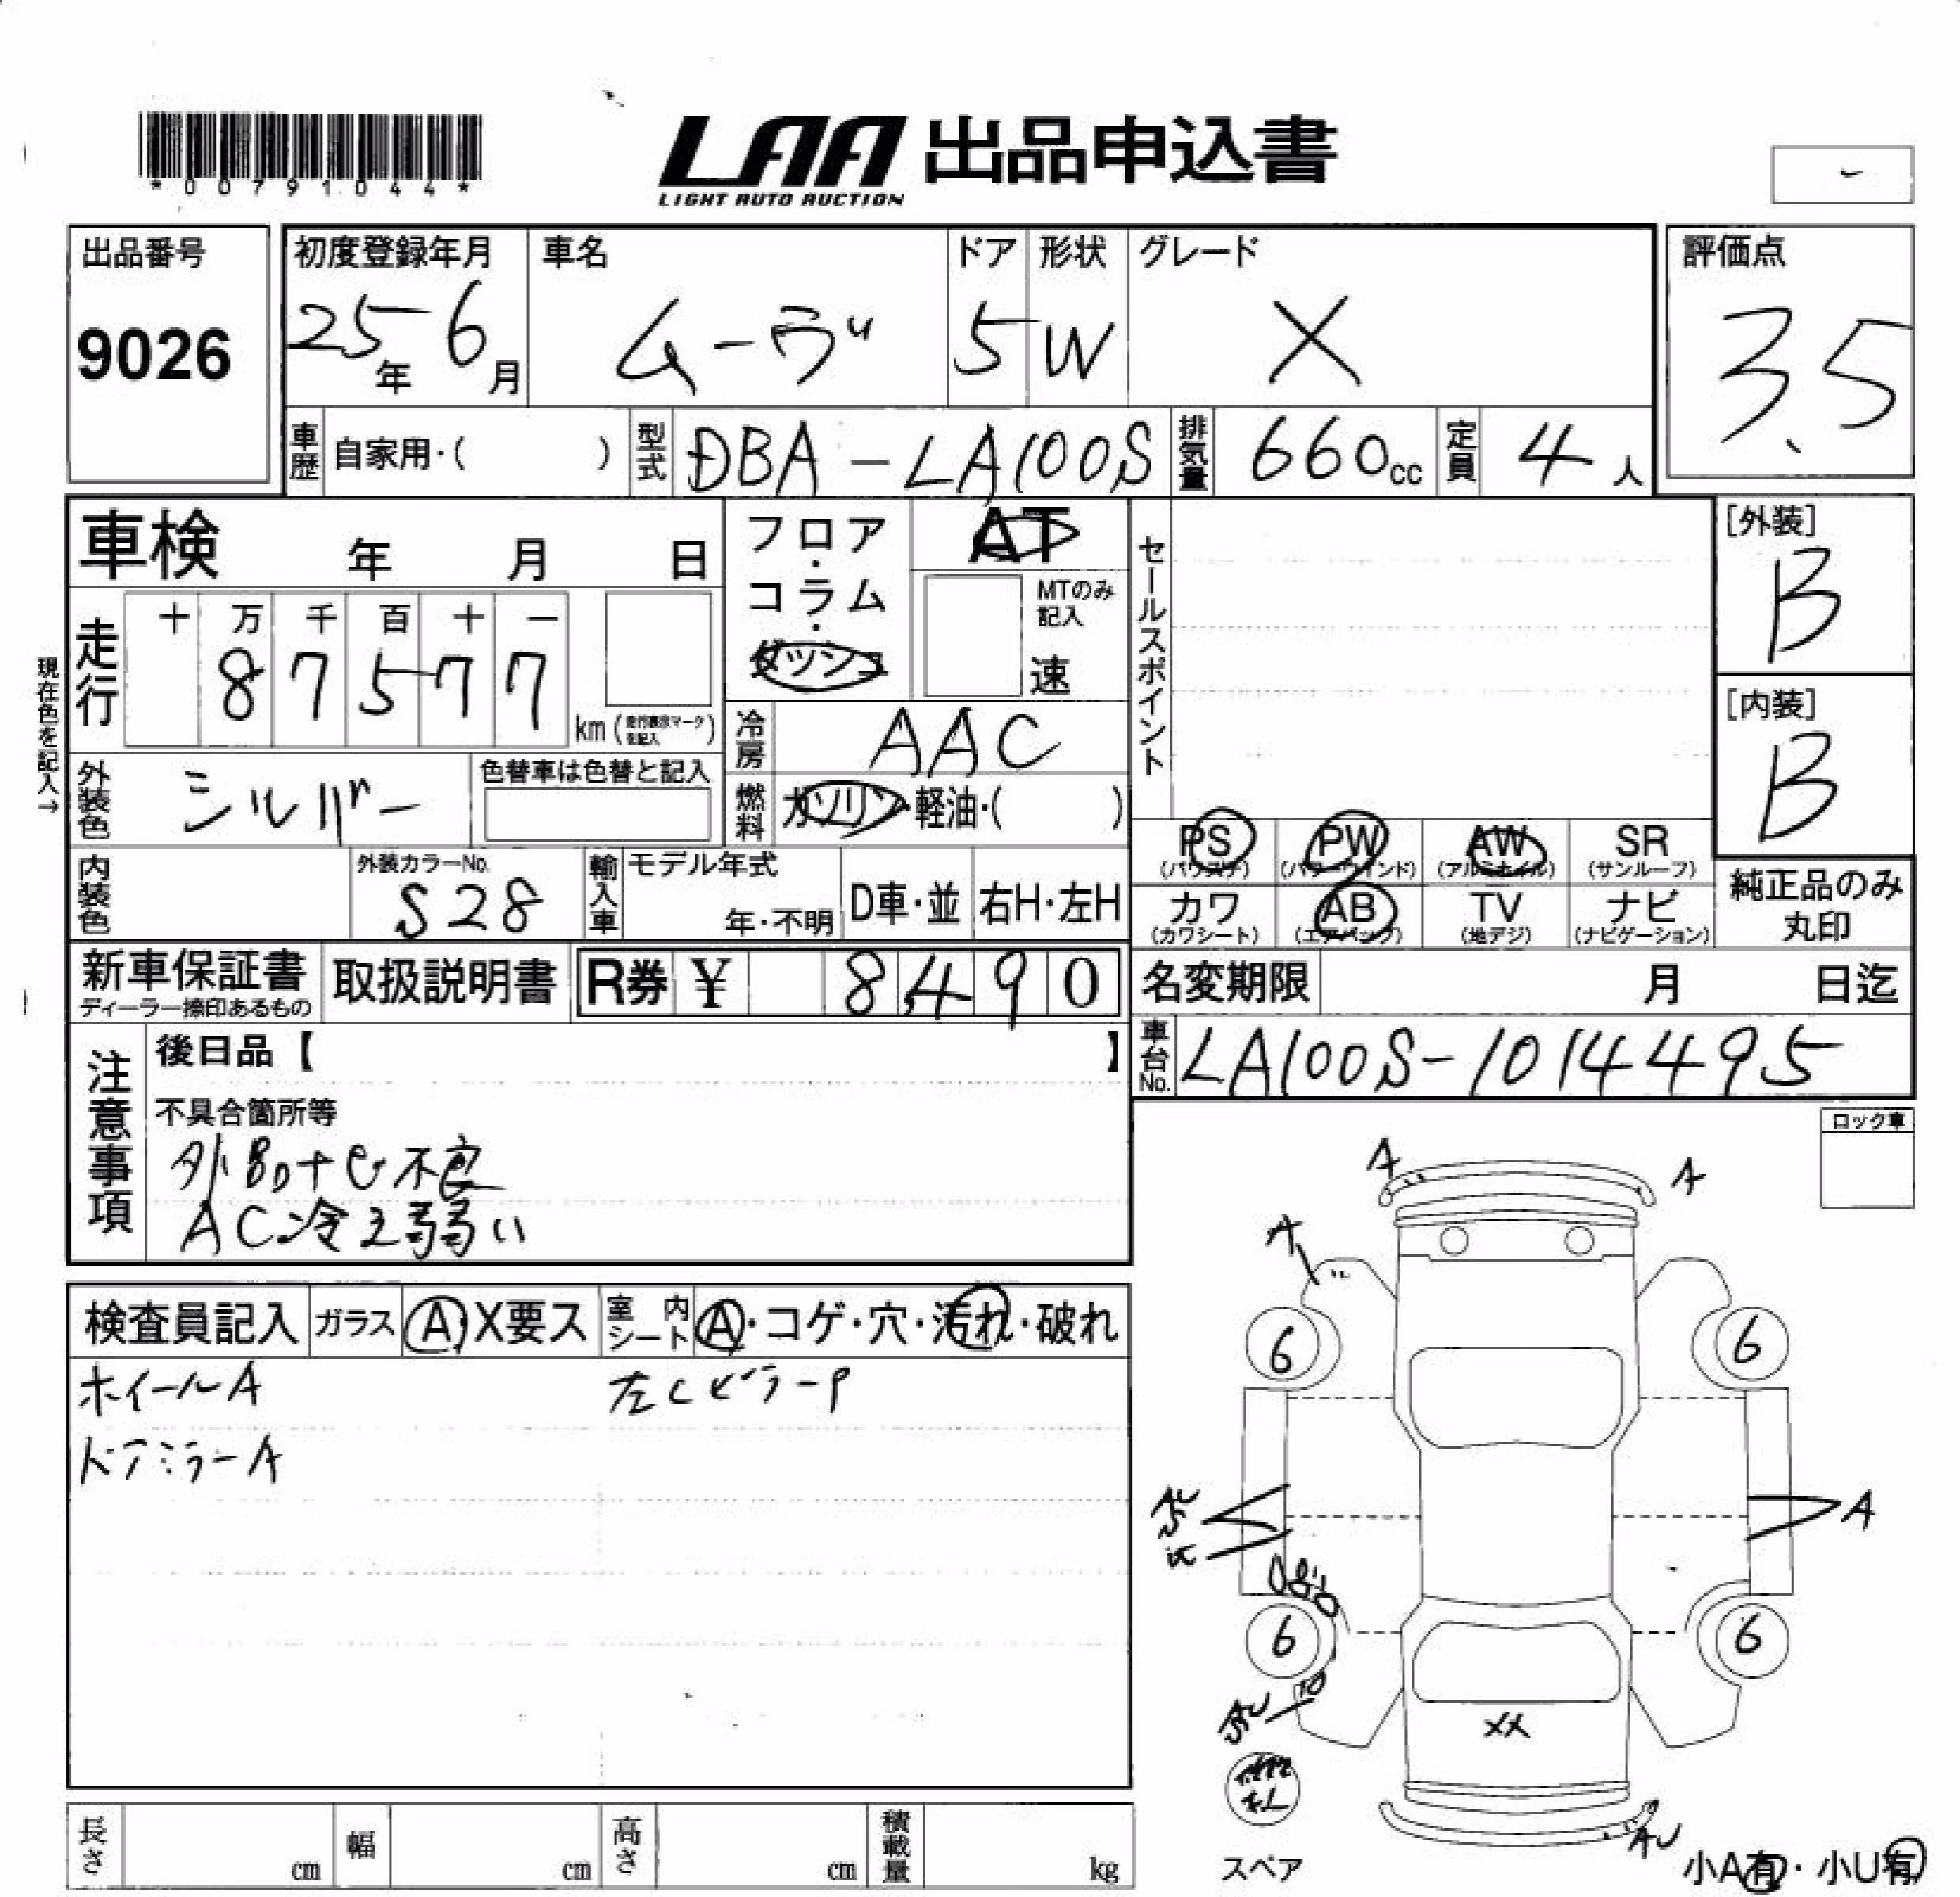 *00791044*
LAA 出品申込書
LIGHT AUTO AUCTION
出品番号
9026
初度登録年月
25年 6月
車名
ムーヴ
ドア
5
形状
W
グレード
X
評価点
3.5
車歴 自家用・( )
型式 DBA-LA100S
排気量 660cc
定員 4人
車検 年 月 日
フロア・コラム・ダッシュ
AT
MTのみ
記入
速
セールスポイント
[外装]
B
[内装]
B
現在色を記入→
走行
十 万 千 百 十 一
8 7 5 7 7
km (走行表示マークを記入)
冷房 AAC
外装色 シルバー
色替車は色替と記入
燃料 ガソリン・軽油・( )
PS
(パワステ)
PW
(パワーウインド)
AW
(アルミホイル)
SR
(サンルーフ)
カワ
(カワシート)
AB
(エアバック)
TV
(地デジ)
ナビ
(ナビゲーション)
純正品のみ
丸印
内装色
外装カラーNo.
S28
輸入車
モデル年式
年・不明
D車・並
右H・左H
新車保証書
ディーラー捺印あるもの
取扱説明書
R券 ¥ 8490
名変期限 月 日迄
車台No. LA100S-1014495
注意事項
後日品【 】
不具合箇所等
外品ナビ不良
AC冷え弱い
ロック車
検査員記入
ガラス A・X要ス
室内シート A・コゲ・穴・汚れ・破れ
ホイールA
左CピラーP
ドアミラーA
A
A
A
6
6
A
6
6
XX
AU
スペア
小A有・小U有
長さ cm
幅 cm
高さ cm
積載量 kg